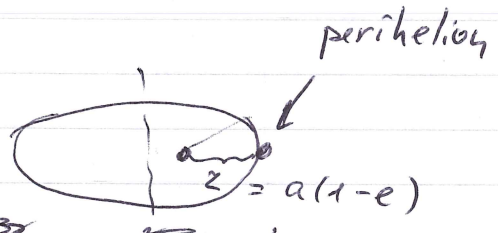 perihelion
r = a(1-e)